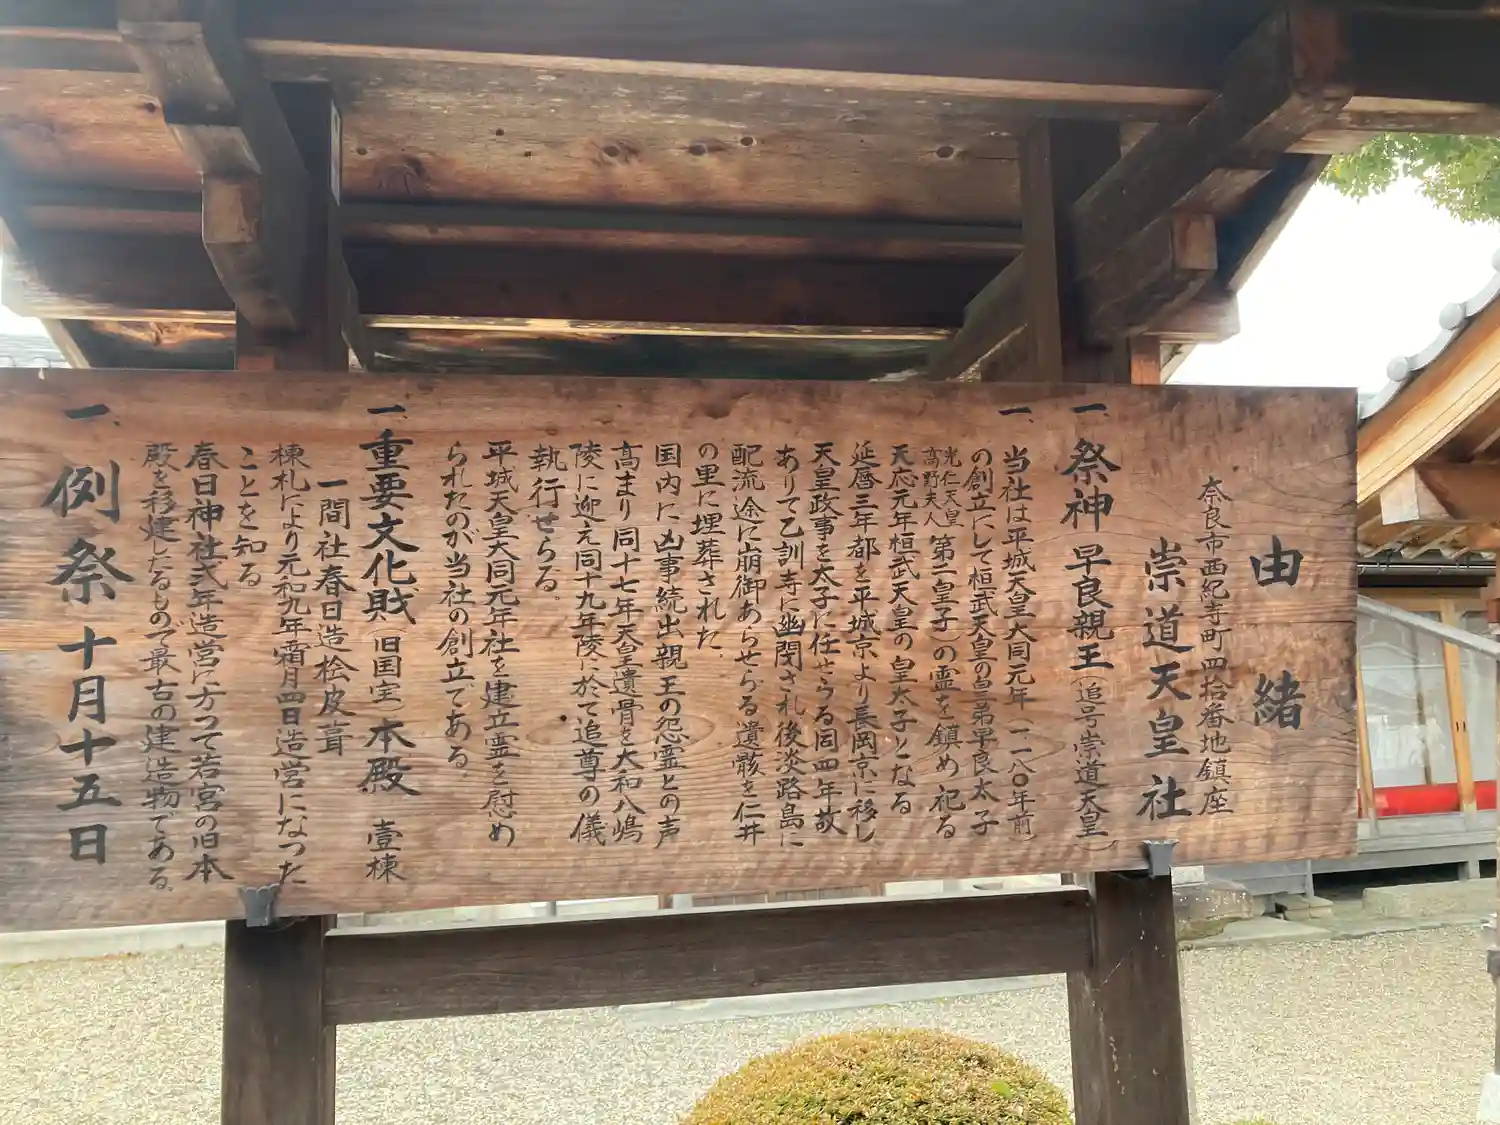 由緒
奈良市西紀寺町四拾番地鎮座
崇道天皇社
一、祭神 早良親王(追号崇道天皇)
一、当社は平城天皇大同元年(一一八〇年前)
の創立にして桓武天皇の皇弟早良太子
光仁天皇
高野夫人
第二皇子)の霊を鎮め祀る
天応元年桓武天皇の皇太子となる
延暦三年都を平城京より長岡京に移し
天皇政事を太子に任せらる同四年故
ありて乙訓寺に幽閉され後淡路島に
配流途に崩御あらせらる遺骸を仁井
の里に埋葬された
国内に凶事続出親王の怨霊との声
高まり同十七年天皇遺骨を大和八嶋
陵に迎え同十九年陵に於て追尊の儀
執行せらる。
平城天皇大同元年社を建立霊を慰め
られたのが当社の創立である。
一、重要文化財(旧国宝)本殿 壹棟
一間社春日造桧皮葺
棟札により元和九年霜月四日造営になった
ことを知る
春日神社式年造営に方って若宮の旧本
殿を移建したるもので最古の建造物である。
一、例祭 十月十五日